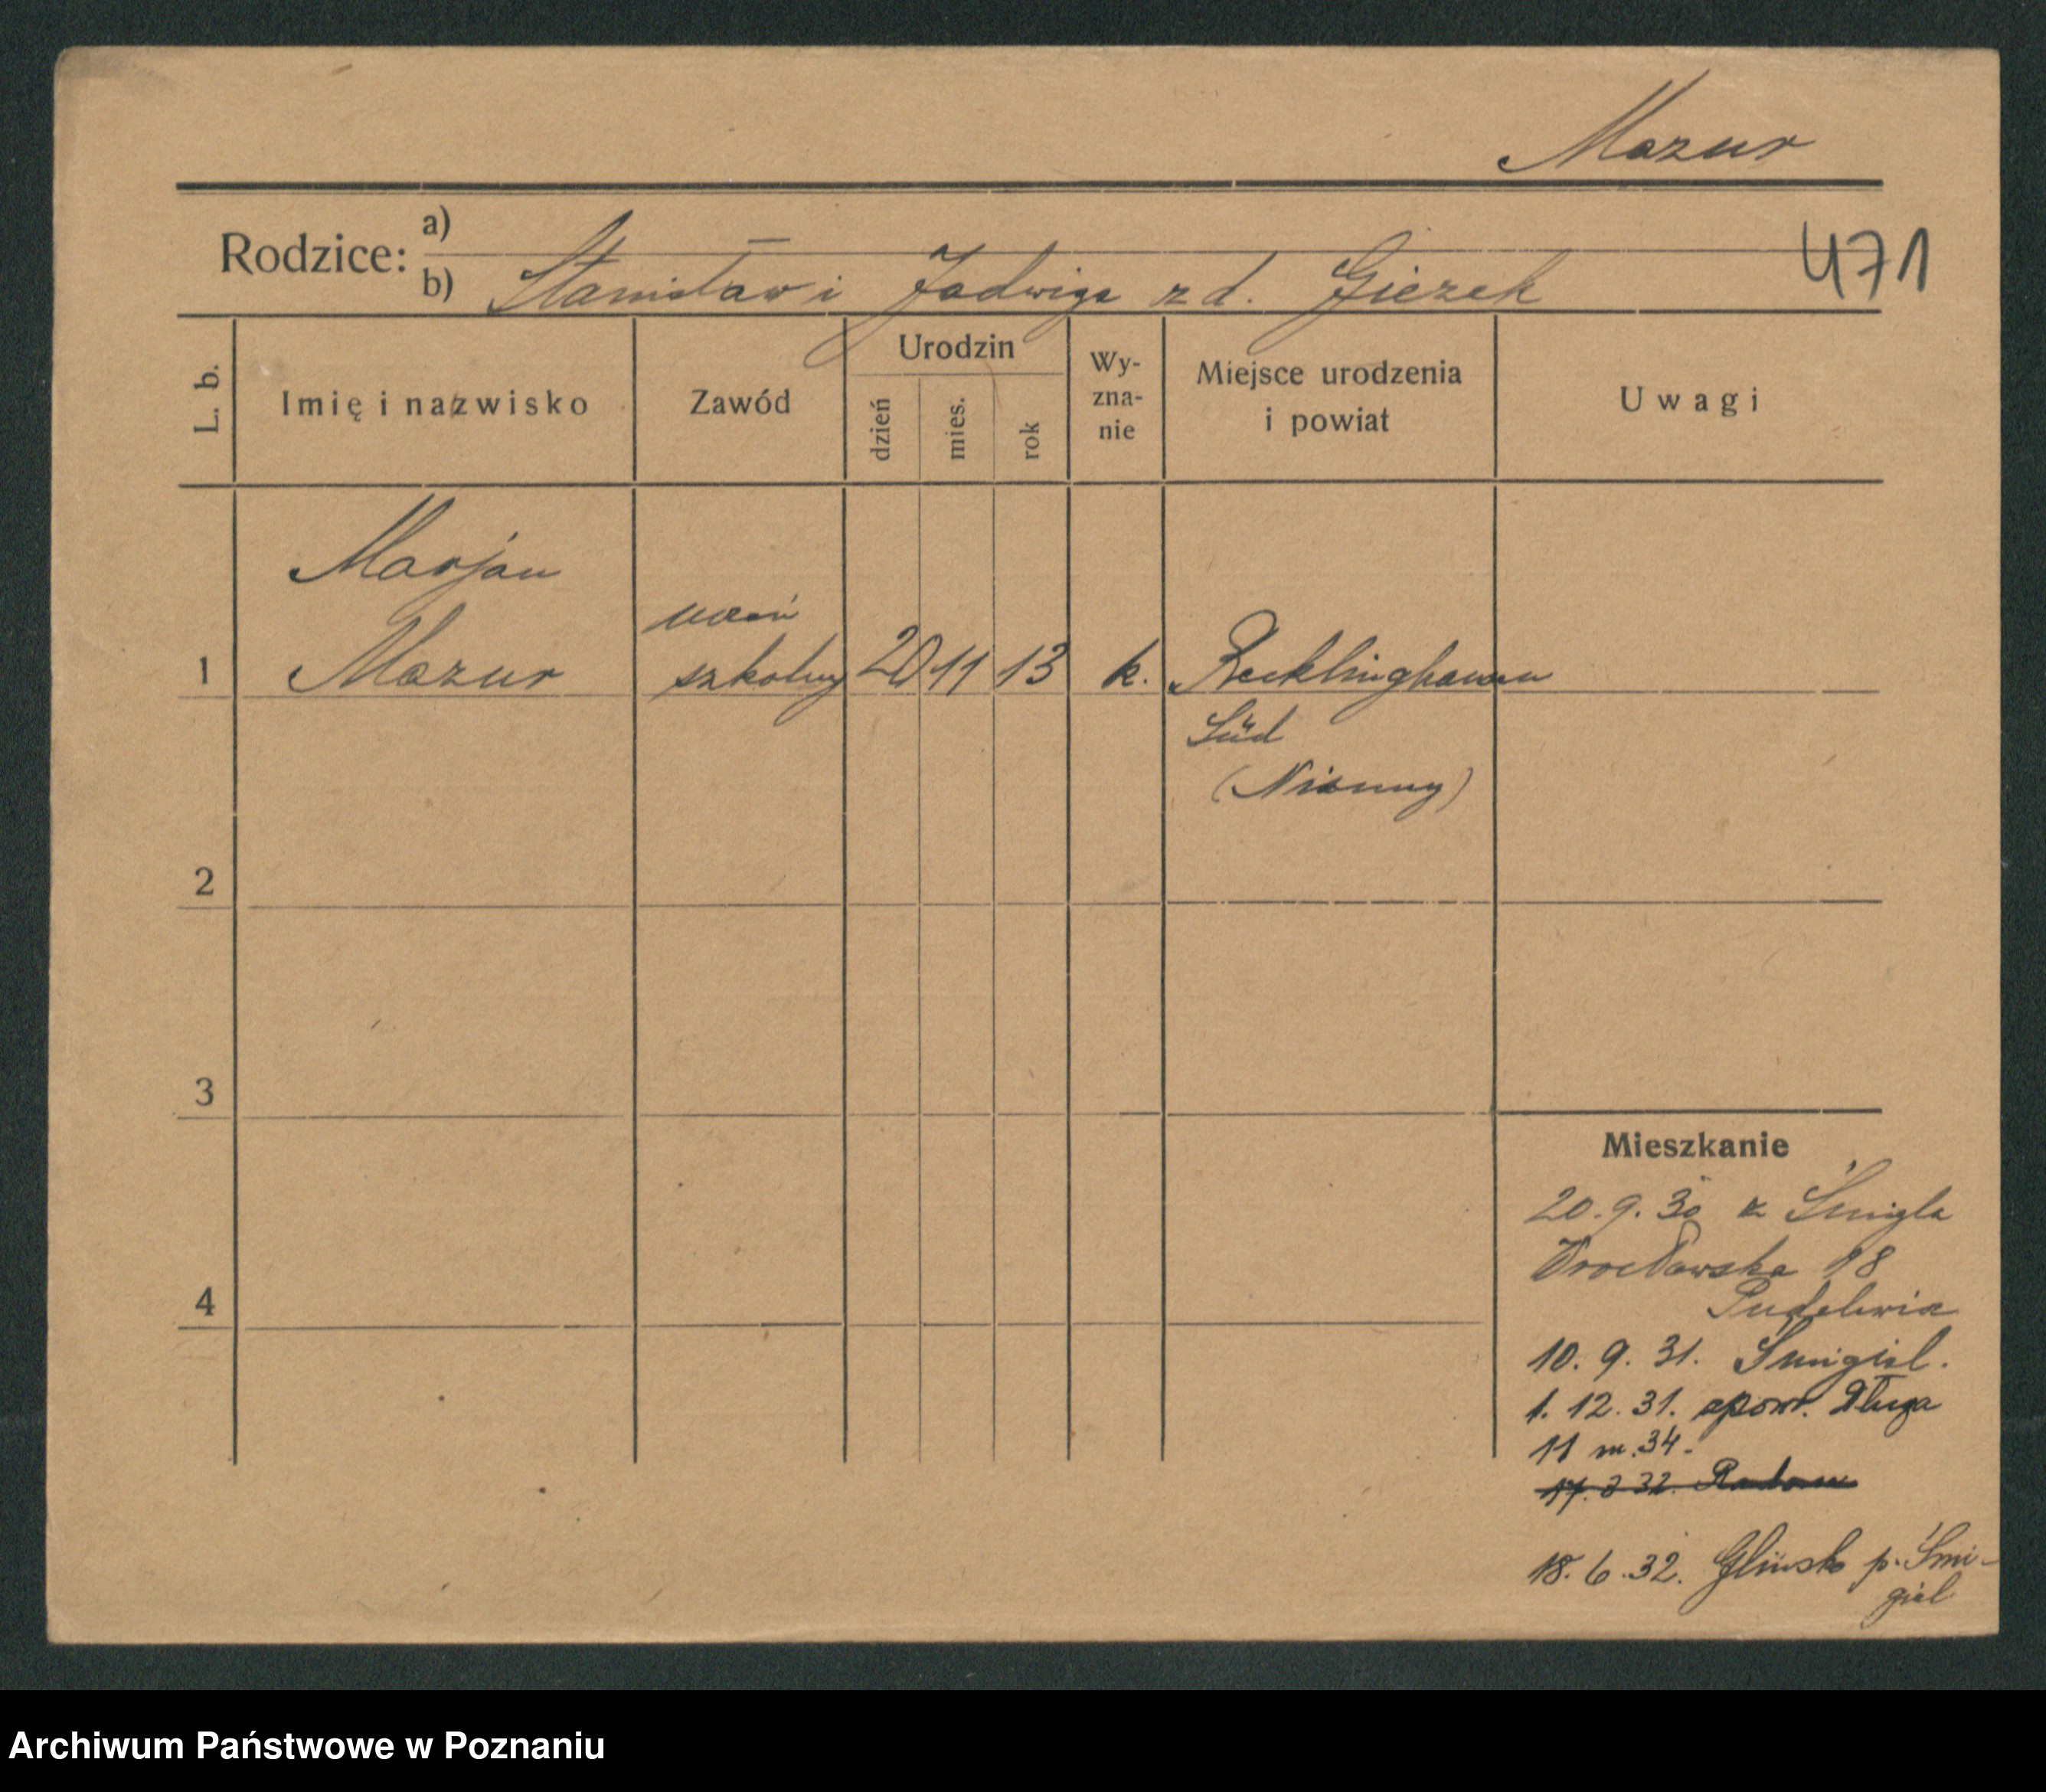 Mazur
Rodzice: a)
b) Stanisław i Jadwiga z d. Giezek
471
L. b.
Imię i nazwisko
Zawód
Urodzin
dzień
mies.
rok
Wy-
zna-
nie
Miejsce urodzenia
i powiat
Uwagi
Marjan
uczeń
1 Mazur szkolny 20 11 13 k. Recklinghausen
Süd
(Niemcy)
2
3
4
Mieszkanie
20.9.30 z Śmigla
Wrocławska 18
10.9.31. Śmigiel.
1.12.31. spowr. Długa
11 m.34.
18.6.32. Glińsko p. Śmi-
giel
Archiwum Państwowe w Poznaniu